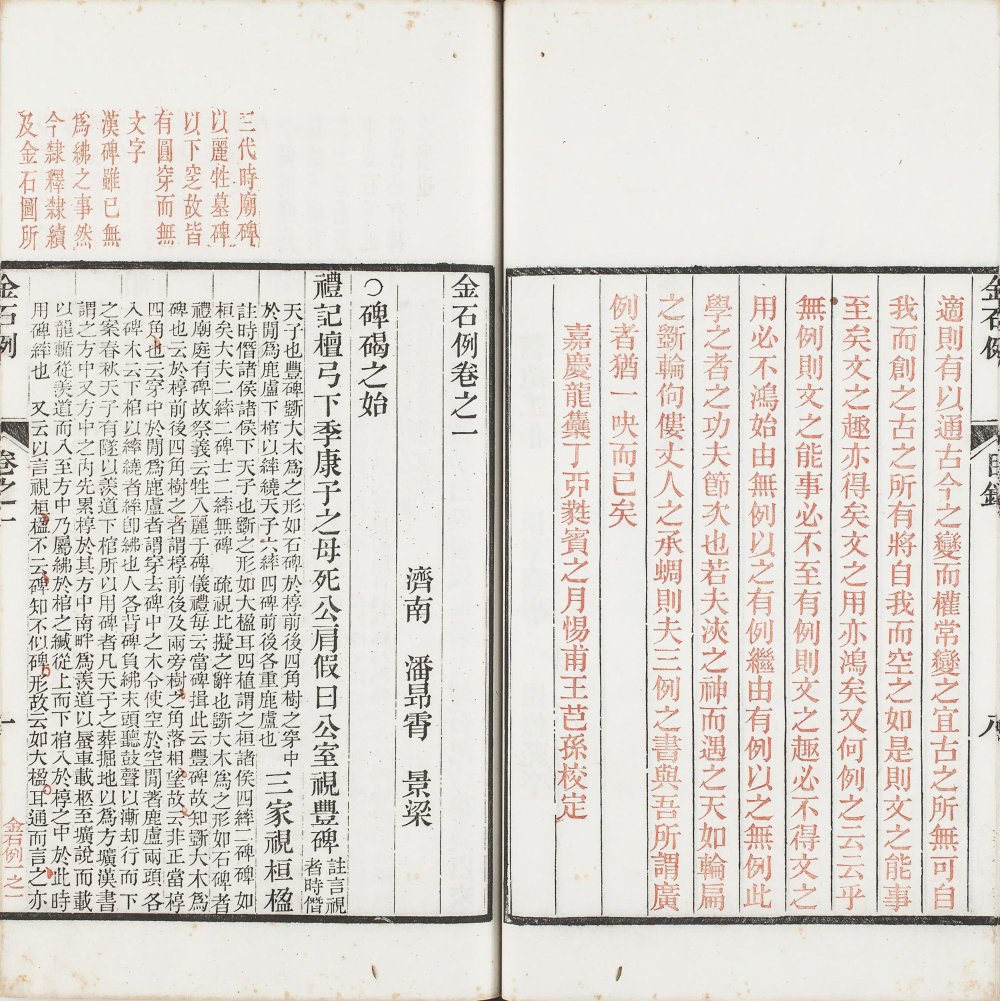 適則有以通古今之變而權常變之宜古之所無可自
我而創之古之所有將自我而空之如是則文之能事
至矣文之趣亦得矣文之用亦鴻矣又何例之云云乎
無例則文之能事必不至有例則文之趣必不得文之
用必不鴻始由無例以之有例繼由有例以之無例此
學之者之功夫節次也若夫浹之神而遇之天如輪扁
之斲輪佝僂丈人之承蜩則夫三例之書與吾所謂廣
例者猶一吷而已矣
嘉慶龍集丁亞蕤賓之月惕甫王芑孫校定
金石例
目錄
八
三代時廟碑
以麗牲墓碑
以下窆故皆
有圓穿而無
文字
漢碑雖已無
爲紼之事然
今隸釋隸續
及金石圖所
金石例卷之一
濟南 潘昂霄 景梁
○碑碣之始
禮記檀弓下季康子之母死公肩假曰公室視豐碑
註言視
者時僭
天子也豐碑斲大木爲之形如石碑於椁前後四角樹之穿中
於閒爲鹿盧下棺以繂繞天子六繂四碑前後各重鹿盧也
三家視桓楹
註時僭諸侯諸侯下天子也斲之形如大楹耳四植謂之桓諸侯四繂二碑碑如
桓矣大夫二繂二碑士二繂無碑 疏視比擬之辭也斲大木爲之形如石碑者
禮廟庭有碑故祭義云牲入麗于碑儀禮每云當碑揖此云豐碑故知斲大木爲
碑也云於椁前後四角樹之者謂椁前後及兩旁樹之角落相望故云非正當椁
四角也云穿中於閒爲鹿盧者謂穿去碑中之木令使空於空閒著鹿盧兩頭各
入碑木云下棺以繂繞者繂卽紼也人各背碑負紼末頭聽鼓聲以漸却行而下
之案春秋天子有隧以羨道下棺所以用碑者凡天子之葬掘地以爲方壙漢書
謂之方中又方中之內先累椁於其方中南畔爲羨道以蜃車載柩至壙說而載
以龍輴從羨道而入至方中乃屬紼於棺之緘從上而下棺入於椁之中於此時
用碑繂也 又云以言視桓楹不云碑知不似碑形故云如大楹耳通而言之亦
金石例
卷之一
一
金石例一之一